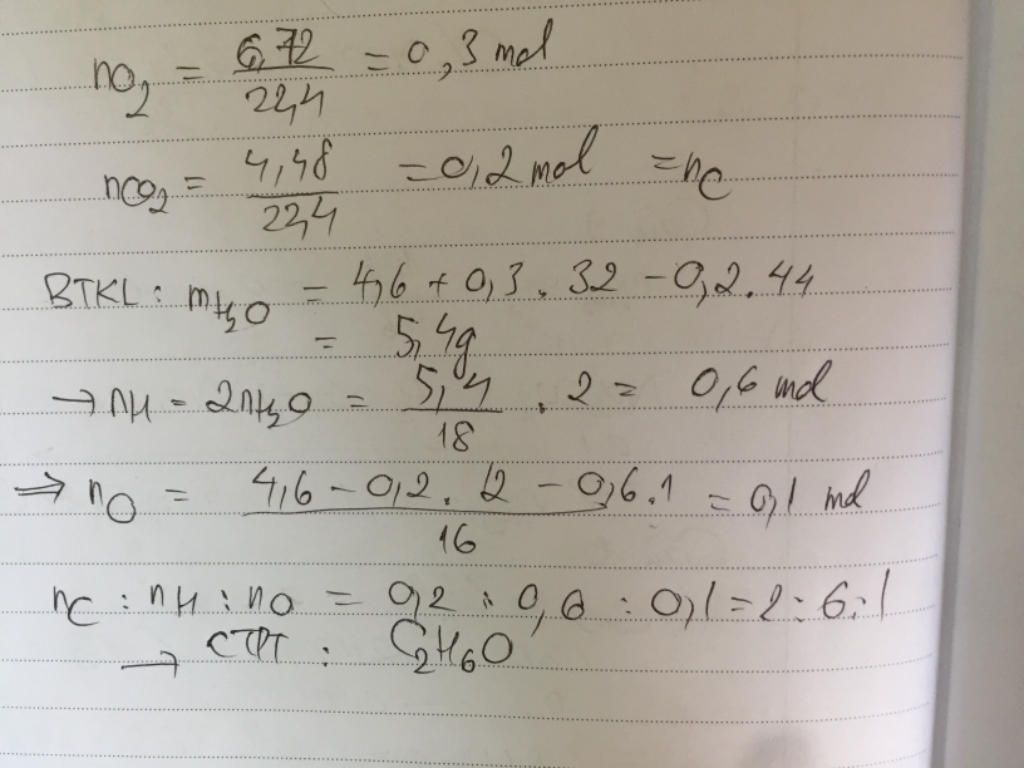 nO₂ = 6,72/22,4 = 0,3 mol
nCO₂ = 4,48/22,4 = 0,2 mol = nC
BTKL : mH₂O = 4,6 + 0,3 . 32 - 0,2 . 44
= 5,4g
→ nH = 2nH₂O = 5,4/18 . 2 = 0,6 mol
⇒ nO = (4,6 - 0,2 . 12 - 0,6 . 1)/16 = 0,1 mol
nC : nH : nO = 0,2 : 0,6 : 0,1 = 2 : 6 : 1
→ CTPT : C₂H₆O